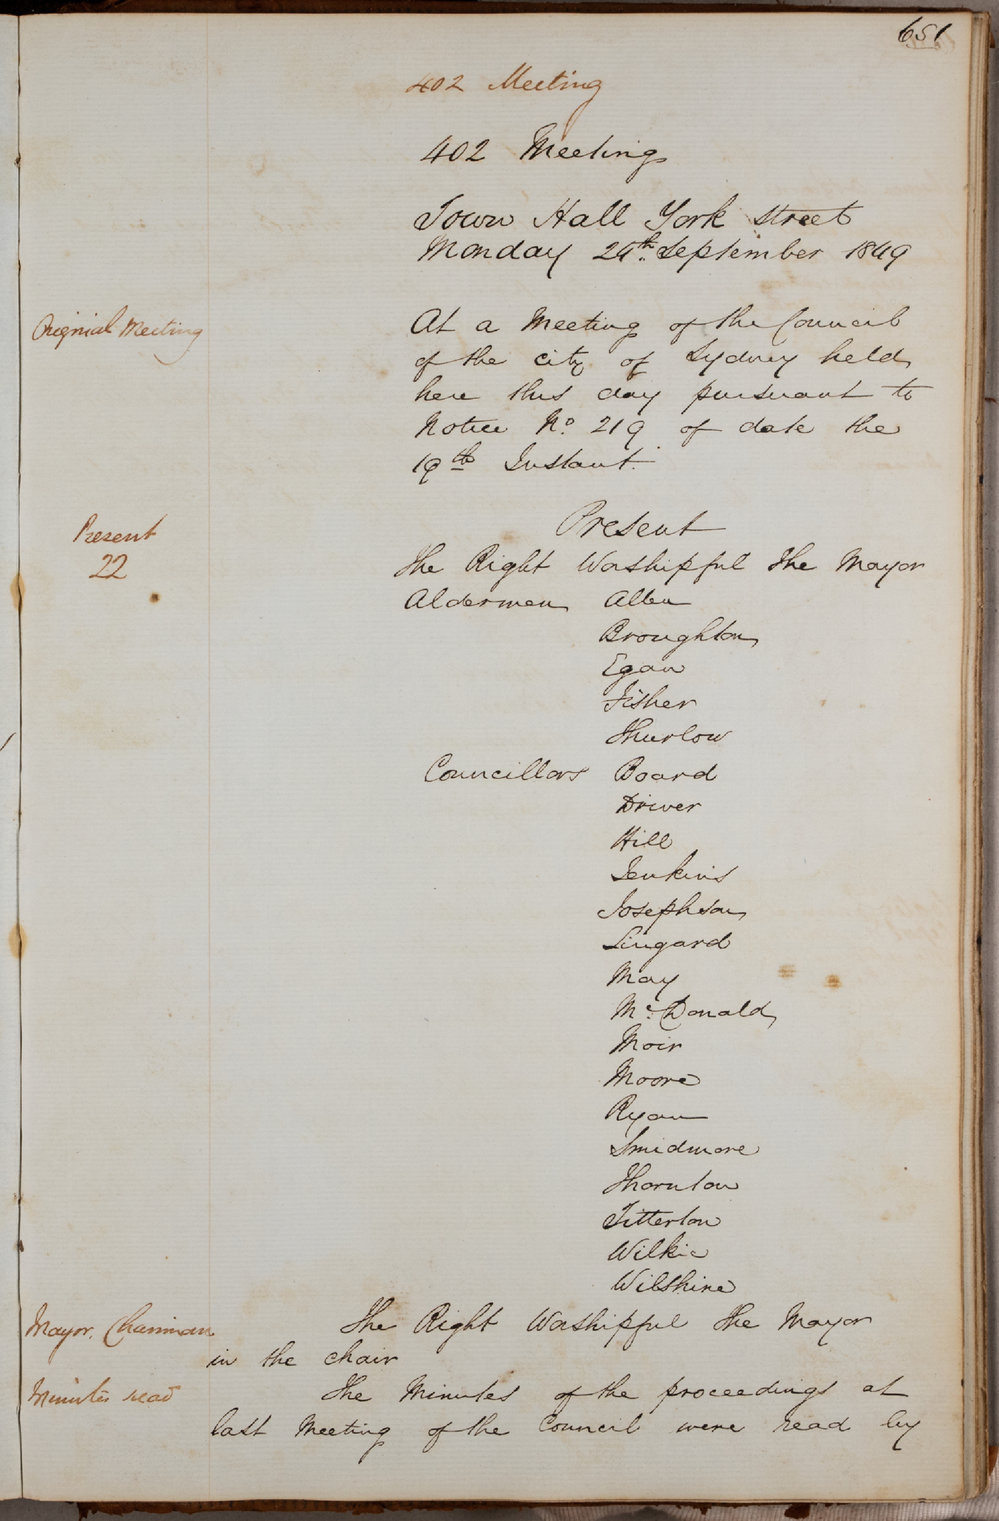 651
402 Meeting
402 Meeting
Town Hall York Street
Monday 24th. September 1849
Orignial Meeting
At a Meeting of the Council
of the city of Sydney held
here this day pursuant to
Notice No. 219 of date the
19th Instant.
Present
22
Present
The Right Worshipful The Mayor
Aldermen Allen
Broughton
Egan
Fisher
Thurlow
Councillors Board
Driver
Hill
Jenkins
Josephson
Lingard
May
Mc. Donald
Moir
Moore
Ryan
Smidmore
Thornton
Titterton
Wilkie
Wilshire
Mayor. Chairman
The Right Worshipful The Mayor
in the chair
Minutes read
The Minutes of the proceedings at
last Meeting of the Council were read by